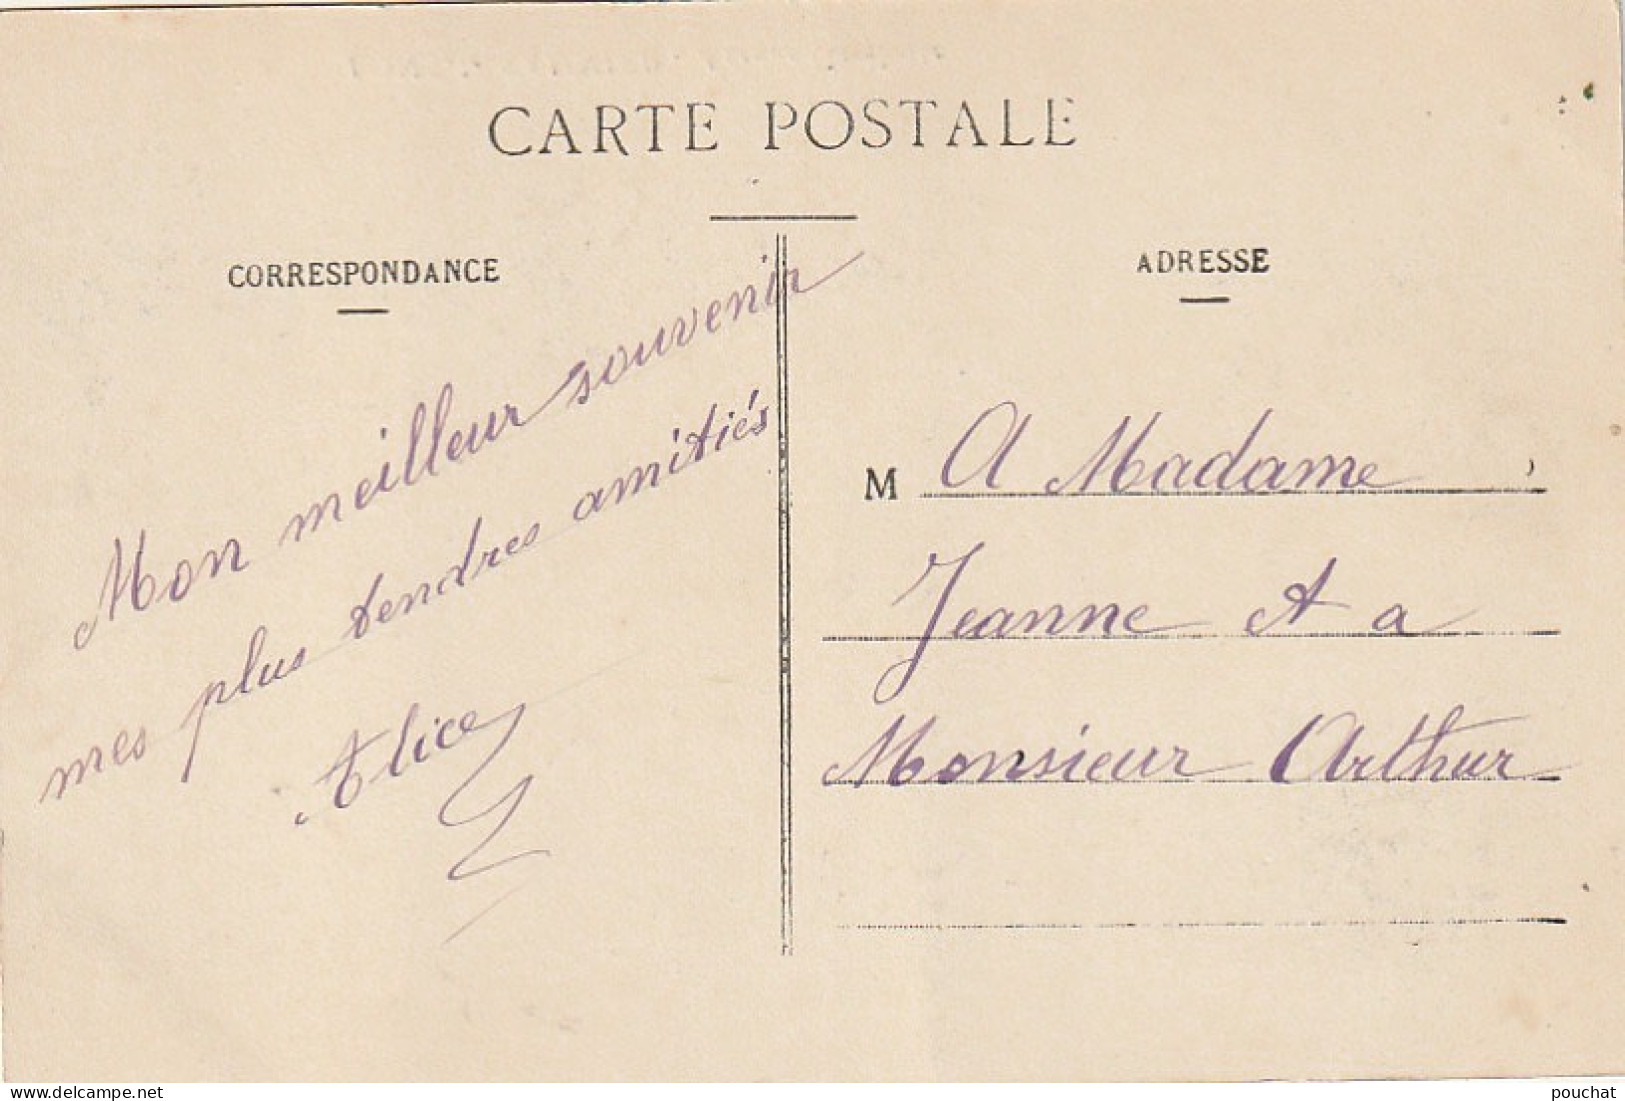 CARTE POSTALE
CORRESPONDANCE
Mon meilleur souvenir
mes plus tendres amitiés
Alice
ADRESSE
M A Madame
Jeanne et a
Monsieur Arthur
www.delcampe.net
pouchat